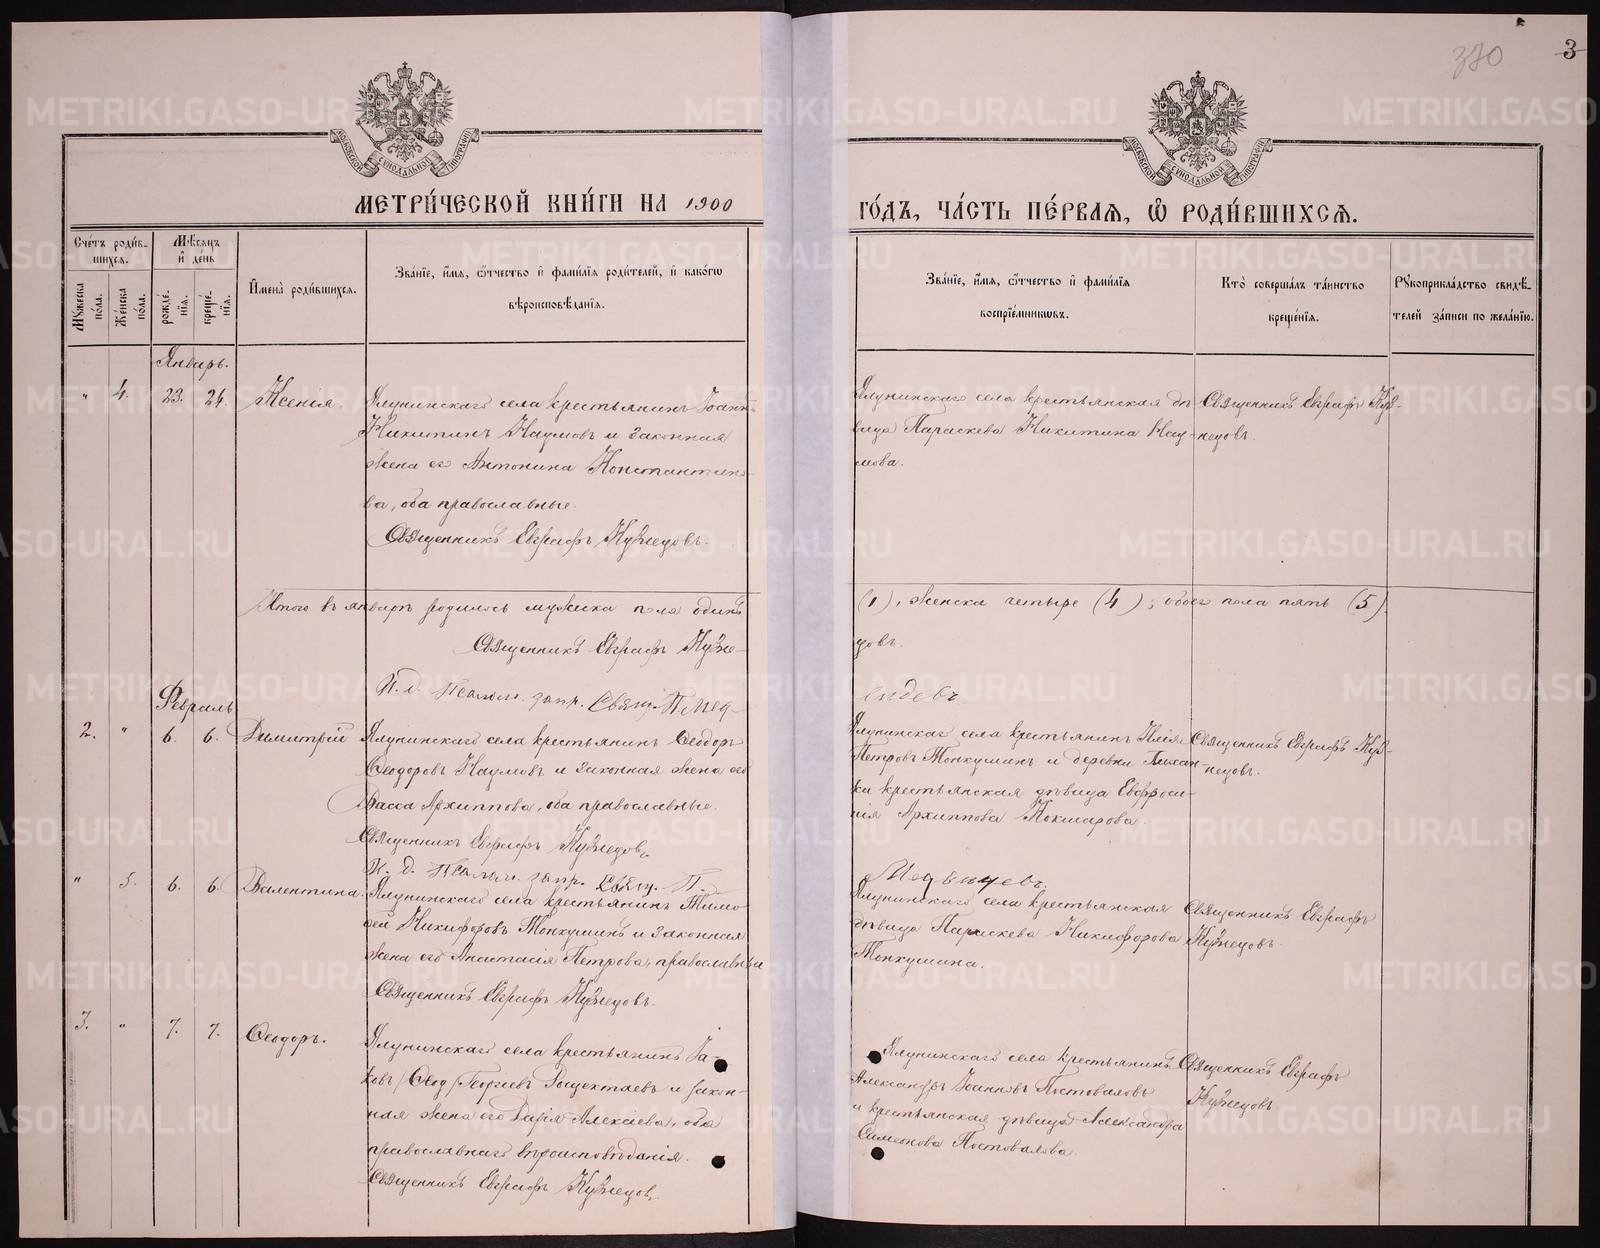 370
3
МОСКОВСКОЙ СѴНОДАЛЬНОЙ ТИПОГРАФІИ
МОСКОВСКОЙ СѴНОДАЛЬНОЙ ТИПОГРАФІИ
МЕТРИ́ЧЕСКОЙ КНИ́ГИ НА 1900
ГО́ДЪ, ЧА́СТЬ ПЕ́РВАѦ, Ѡ҆ РОДИ́ВШИХСѦ.
Сче́тъ роди́в-
шихсѧ.
Мѣ́сѧцъ
и҆ де́нь
Мꙋ́жеска по́ла.
Же́нска по́ла.
рожде́-
нїѧ.
креще́-
нїѧ.
И҆мена̀ роди́вшихсѧ.
Зва́нїе, и҆́мѧ, ѻ҆́тчество и҆ фами́лїѧ роди́телей, и҆ како́гѡ
вѣроисповѣ́данїѧ.
Зва́нїе, и҆́мѧ, ѻ҆́тчество и҆ фами́лїѧ
воспрїе́мникѡвъ.
Кто̀ соверша́лъ та́инство
креще́нїѧ.
Рꙋкоприкла́дство свидѣ́-
телей за́писи по жела́нїю.
Январь.
" 4. 23. 24. Ксенія.
Ялунинскаго села крестьянинъ Іоаннъ
Никитинъ Наумовъ и законная
жена его Антонина Константино-
ва, оба православные.
Священникъ Евграфъ Кузнецовъ.
Ялунинскаго села крестьянская дѣ-
вица Параскева Никитина Нау-
мова.
Священникъ Евграфъ Куз-
нецовъ.
Итого въ январѣ родилось мужска пола одинъ
(1), женска четыре (4); обоего пола пять (5)
Священникъ Евграфъ Кузне-
цовъ.
И. д. Псалом. запр. Свящ. П. Мед-
Февраль
2. " 6. 6. Димитрій
Ялунинскаго села крестьянинъ Ѳеодоръ
Ѳеодоровъ Наумовъ и законная жена его
Васса Архиппова, оба православные.
Священникъ Евграфъ Кузнецовъ.
И. д. Псалом. запр. Свящ. П.
Ялунинскаго села крестьянинъ Илія
Петровъ Топкушинъ и деревни
ки крестьянская дѣвица Евфроси-
нія Архиппова Кокшарова.
Священникъ Евграфъ Куз-
нецовъ.
" 5. 6. 6. Валентина.
Ялунинскаго села крестьянинъ Тимо-
ѳей Никифоровъ Топкушинъ и законная
жена его Анастасія Петрова, православны
Священникъ Евграфъ Кузнецовъ.
Ялунинскаго села крестьянская
дѣвица Параскева Никифорова
Топкушина.
Священникъ Евграфъ
Кузнецовъ.
3. " 7. 7. Ѳеодоръ.
Ялунинскаго села крестьянинъ Іа-
ковъ /Ѳеод/ Георгіевъ и закон-
ная жена его Дарія Алексіева, оба
православнаго вѣроисповѣданія.
Священникъ Евграфъ Кузнецовъ.
Ялунинскаго села крестьянинъ
Александръ Іоанновъ Постоваловъ
и крестьянская дѣвица Александра
Симеонова Постовалова.
Священникъ Евграфъ
Кузнецовъ.
METRIKI.GASO-URAL.RU